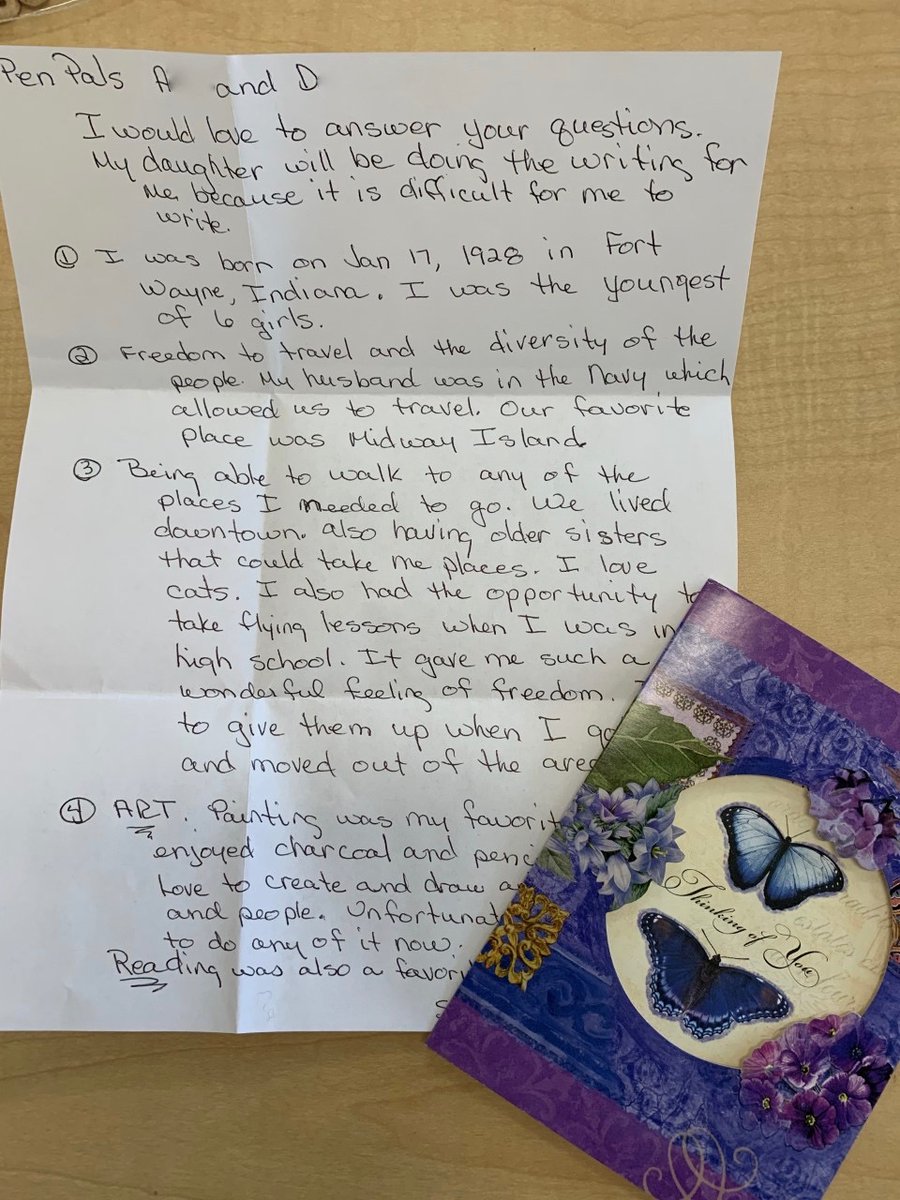 Pen Pals A and D
I would love to answer your questions.
My daughter will be doing the writing for
me because it is difficult for me to
write.
① I was born on Jan 17, 1928 in Fort
Wayne, Indiana. I was the youngest
of 6 girls.
② Freedom to travel and the diversity of the
people. My husband was in the Navy which
allowed us to travel. Our favorite
place was Midway Island.
③ Being able to walk to any of the
places I needed to go. We lived
downtown. also having older sisters
that could take me places. I love
cats. I also had the opportunity to
take flying lessons when I was in
high school. It gave me such a
wonderful feeling of freedom.
to give them up when I
and moved out of the area
④ ART. Painting was my
enjoyed charcoal and
Love to create and draw
and people.
to do any of it now.
Reading was also a
Thinking of You